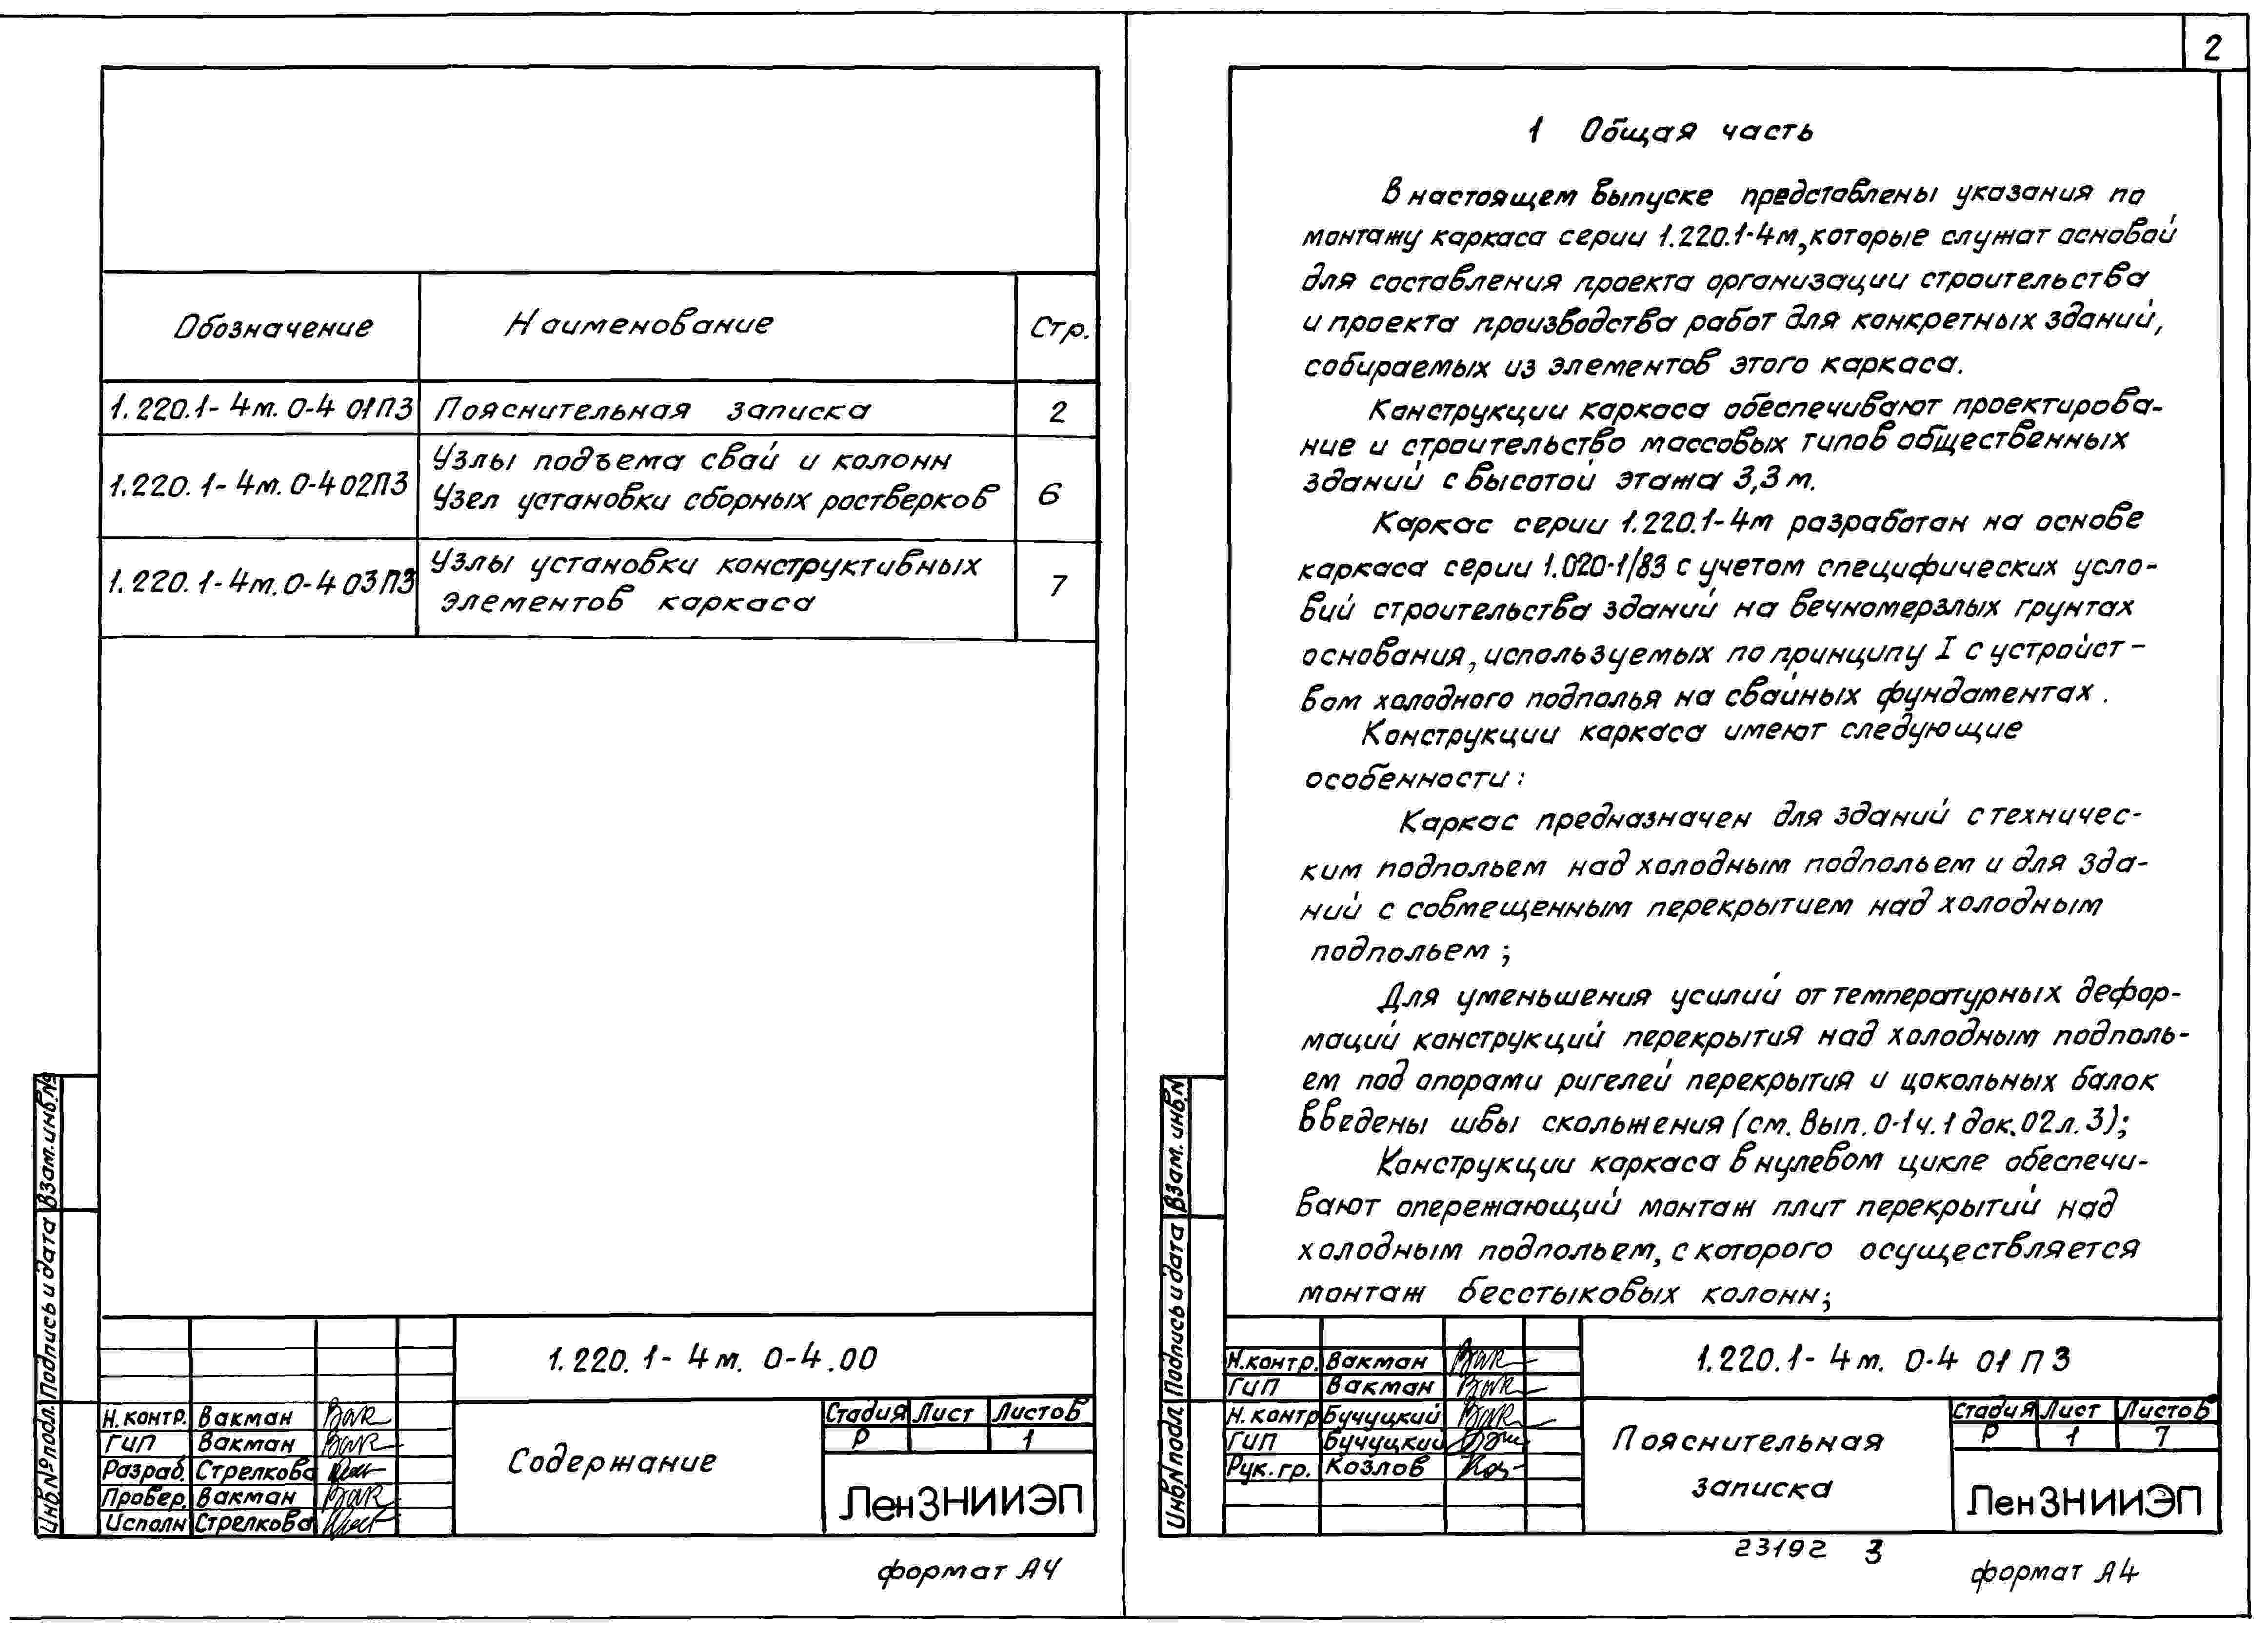 Обозначение Наименование Стр.
1.220.1-4м. 0-4 01ПЗ Пояснительная записка 2
1.220.1-4м. 0-4 02ПЗ Узлы подъема свай и колонн
Узел установки сборных ростверков 6
1.220.1-4м. 0-4 03ПЗ Узлы установки конструктивных
элементов каркаса 7
Взам. инв.№
Подпись и дата
Инв.№подл.
1.220.1-4м. 0-4.00
Н.контр. Вакман
ГИП Вакман
Разраб. Стрелкова
Провер. Вакман
Исполн Стрелкова
Содержание
Стадия Лист Листов
Р 1
ЛенЗНИИЭП
формат А4
2
1 Общая часть
В настоящем выпуске представлены указания по
монтажу каркаса серии 1.220.1-4м, которые служат основой
для составления проекта организации строительства
и проекта производства работ для конкретных зданий,
собираемых из элементов этого каркаса.
Конструкции каркаса обеспечивают проектирова-
ние и строительство массовых типов общественных
зданий с высотой этажа 3,3 м.
Каркас серии 1.220.1-4м разработан на основе
каркаса серии 1.020-1/83 с учетом специфических усло-
вий строительства зданий на вечномерзлых грунтах
основания, используемых по принципу I с устройст-
вом холодного подполья на свайных фундаментах.
Конструкции каркаса имеют следующие
особенности:
Каркас предназначен для зданий с техничес-
ким подпольем над холодным подпольем и для зда-
ний с совмещенным перекрытием над холодным
подпольем;
Для уменьшения усилий от температурных дефор-
маций конструкций перекрытия над холодным подполь-
ем под опорами ригелей перекрытия и цокольных балок
введены швы скольжения (см. Вып. 0-1 ч. 1 док. 02 л. 3);
Конструкции каркаса в нулевом цикле обеспечи-
вают опережающий монтаж плит перекрытий над
холодным подпольем, с которого осуществляется
монтаж бесстыковых колонн;
Взам. инв.№
Подпись и дата
Инв.№подл.
1.220.1-4м. 0-4 01 ПЗ
Н.контр. Вакман
ГИП Вакман
Н.контр Бучуцкий
ГИП Бучуцкий
Рук.гр. Козлов
Пояснительная
записка
Стадия Лист Листов
Р 1 7
ЛенЗНИИЭП
23192 3
формат А4